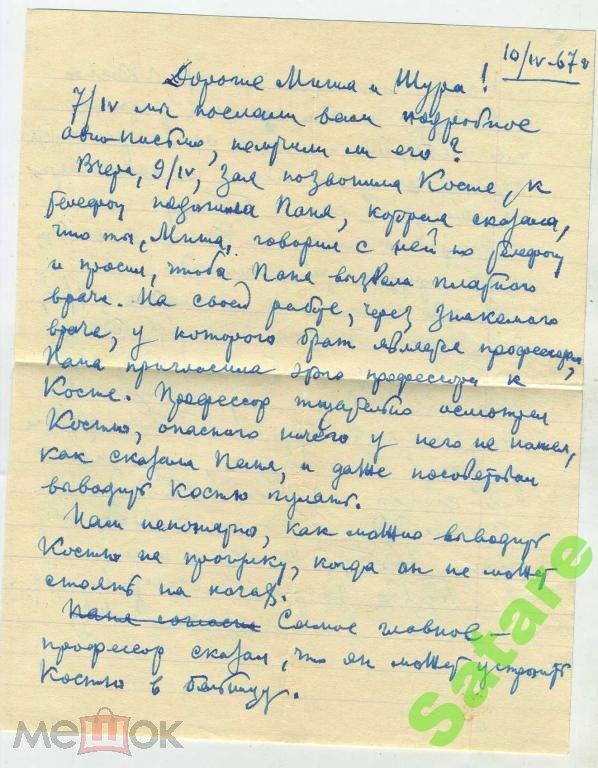 10/IV-67 г
Дорогие Миша и Шура!
7/IV мы послали вам подробное
авиа-письмо, получили ли его?
Вчера, 9/IV, Зая позвонила Косте, к
телефону подошла Паня, которая сказала,
что ты, Миша, говорил с ней по телефону
и просил, чтобы Паня вызвала платного
врача. На своей работе, через знакомого
врача, у которого брат является профессором,
Паня пригласила этого профессора к
Косте. Профессор тщательно осмотрел
Костю, опасного ничего у него не нашел,
как сказала Паня, и даже посоветовал
выводить Костю гулять.
Нам непонятно, как можно выводить
Костю на прогулку, когда он не может
стоять на ногах.
Паня согласна Самое главное –
профессор сказал, что он может устроить
Костю в больницу.
Satare
мешок